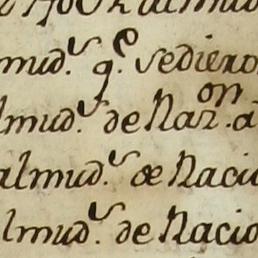 almud
mud.s q.e sedieron
lmud.s de Naz.on a
almud.s de Nacio
lmud.s de Nacio